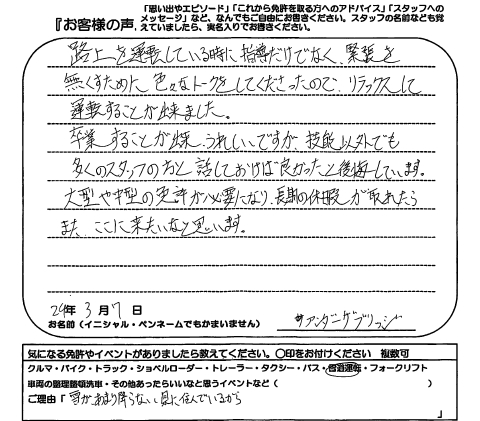 「思い出やエピソード」「これから免許を取る方へのアドバイス」「スタッフへの
メッセージ」など、なんでもご自由にお書きください。スタッフの名前なども覚
えていましたら、実名入りでお書きください。
『お客様の声』
路上を運転している時に指導だけでなく、緊張を
無くすために色々なトークをしてくださったので、リラックスして
運転することが出来ました。
卒業することが出来、うれしいですが、技能以外でも
多くのスタッフの方と話しておけば良かったと後悔しています。
大型や中型の免許が必要になり、長期の休暇が取れたら
また、ここに来たいなと思います。
24年 3月 7日
お名前（イニシャル・ペンネームでもかまいません） サアンダーデブリッジ
気になる免許やイベントがありましたら教えてください。〇印をお付けください 複数可
クルマ・バイク・トラック・ショベルローダー・トレーラー・タクシー・バス・雪道運転・フォークリフト
車両の整理整頓洗車・その他あったらいいなと思うイベントなど（ ）
ご理由「 雪があまり降らない県に住んでいるから 」